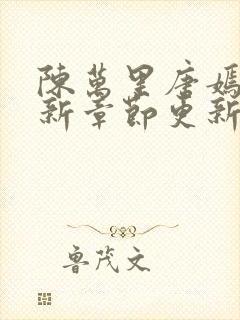 陳萬里唐嫣
新章節更新
魯茂文